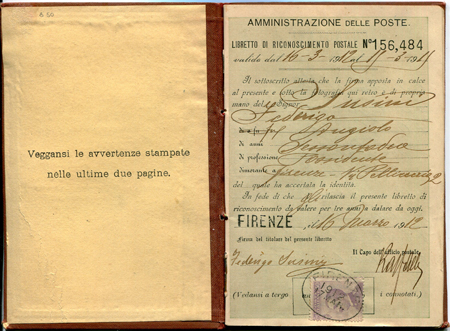 Veggansi le avvertenze stampate
nelle ultime due pagine.
AMMINISTRAZIONE DELLE POSTE.
LIBRETTO DI RICONOSCIMENTO POSTALE N° 156,484
valido dal 16-3-1912 al 15-3-1915
Il sottoscritto attesta che la firma apposta in calce
al presente e sotto la fotografia qui retro è di proprio
mano del signor Susini
Federigo
di fu Angiolo
di anni
di professione Possidente
dimorante a Firenze
del quale ha accertata la identità.
In fede di che rilascia il presente libretto di
riconoscimento da valere per tre anni a datare da oggi.
FIRENZE, li 16 Marzo 1912
Firma del titolare del presente libretto
Il Capo dell'ufficio postale
Federigo Susini
FIRENZE
1912
(Vedansi a tergo i connotati.)